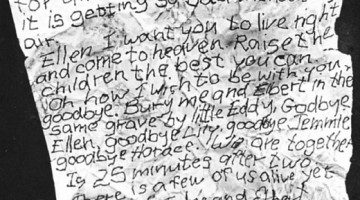 it is getting so
air.
Ellen I want you to live right
and come to heaven. Raise the
children the best you can.
Oh how I wish to be with you,
goodbye. Bury me and Elbert in the
same grave by little Eddy, Godbye
Ellen, goodbye Lily, goodbye Jemmie
goodbye Horace. We are together
Is 25 minutes after two.
There is a few of us alive yet